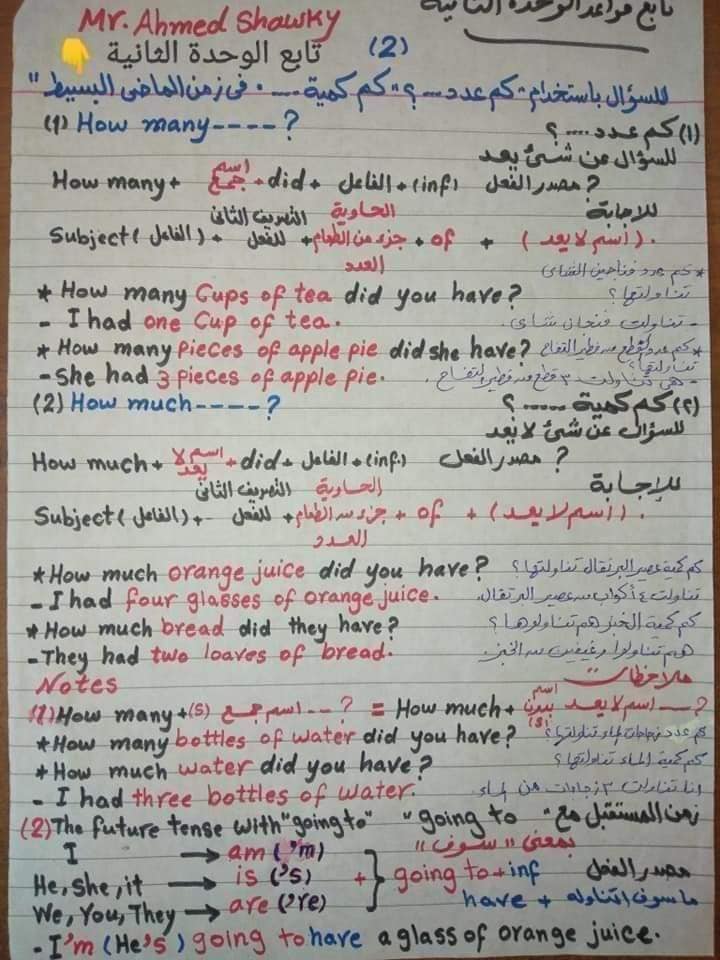 تابع قواعد الوحدة الثانية
Mr. Ahmed Shawky
تابع الوحدة الثانية (2)
للسؤال باستخدام "كم عدد ...؟" "كم كمية ....." فى زمن الماضى البسيط"
(1) How many ----? (1) كم عدد ....؟
للسؤال عن شئ يعد
How many + اسم جمع + did + الفاعل + (inf) مصدر الفعل ?
للإجابة
Subject (الفاعل) + التصريف الثانى للفعل + الحاوية جزء من الطعام العدد + of + (اسم لا يعد).
* كم عدد فناجين الشاى
* How many Cups of tea did you have? تناولتها؟
- I had one Cup of tea. - تناولت فنجان شاى.
* How many pieces of apple pie did she have? * كم عدد قطع من فطير التفاح تناولتها؟
- She had 3 pieces of apple pie. - هى تناولت ٣ قطع من فطير التفاح.
(2) How much ----? (٢) كم كمية .....؟
للسؤال عن شئ لا يعد
How much + اسم لا يعد + did + الفاعل + (inf.) مصدر الفعل ?
للإجابة
Subject (الفاعل) + التصريف الثانى للفعل + الحاوية جزء من الطعام العدد + of + (اسم لا يعد).
* How much orange juice did you have? كم كمية عصير البرتقال تناولتها؟
- I had four glasses of orange juice. تناولت ٤ أكواب من عصير البرتقال.
* How much bread did they have? كم كمية الخبز هم تناولوها؟
- They had two loaves of bread. هم تناولوا رغيفين من الخبز.
Notes ملاحظات
(1) How many + (s) اسم جمع -- ? = How much + اسم لا يعد بدون (s) --- ?
* How many bottles of water did you have? كم عدد زجاجات الماء تناولتها؟
* How much water did you have? كم كمية الماء تناولتها؟
- I had three bottles of water. انا تناولت ٣ زجاجات من الماء.
(2) The future tense with "going to" زمن المستقبل مع "going to"
بمعنى "سوف"
I → am ('m)
He, She, it → is ('s) + going to + inf مصدر الفعل
We, You, They → are ('re) have + ما سوف اتناوله
- I'm (He's) going to have a glass of orange juice.